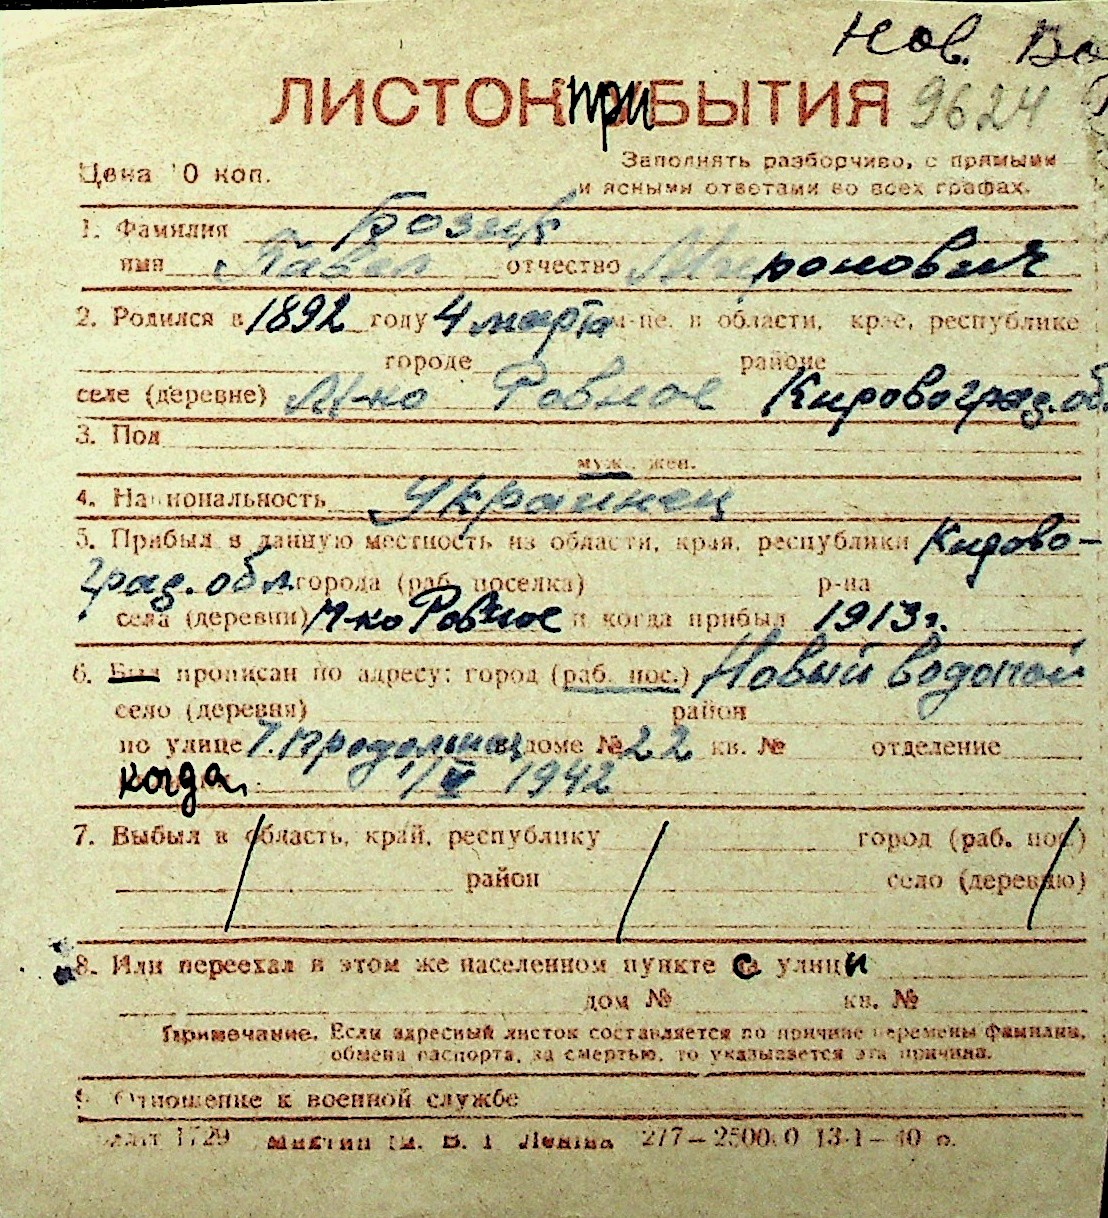 Нов. Во
ЛИСТОК ПРИБЫТИЯ 9624
Цена 10 коп.
Заполнять разборчиво, с прямыми
и ясными ответами во всех графах.
1. Фамилия Бозик
имя Павел отчество Миронович
2. Родился в 1892 году 4 марта м-це, в области, крае, республике
городе районе
селе (деревне) М-ко Ровное Кировоград. обл.
3. Пол
муж., жен.
4. Национальность Украинец
5. Прибыл в данную местность из области, края, республики Кирово-
град. обл. города (раб. поселка) р-на
села (деревни) М-ко Ровное и когда прибыл 1913 г.
6. Был прописан по адресу: город (раб. пос.) Новый водопой
село (деревня) район
по улице 7. Продольная в доме № 22 кв. № отделение
когда 1/V 1942
7. Выбыл в область, край, республику город (раб. пос.)
район село (деревню)
8. Или переехал в этом же населенном пункте с улицы
дом № кв. №
Примечание. Если адресный листок составляется по причине перемены фамилии,
обмена паспорта, за смертью, то указывается эта причина.
9. Отношение к военной службе
1729 ім. В. І Леніна 277—25000 13-1—40 р.